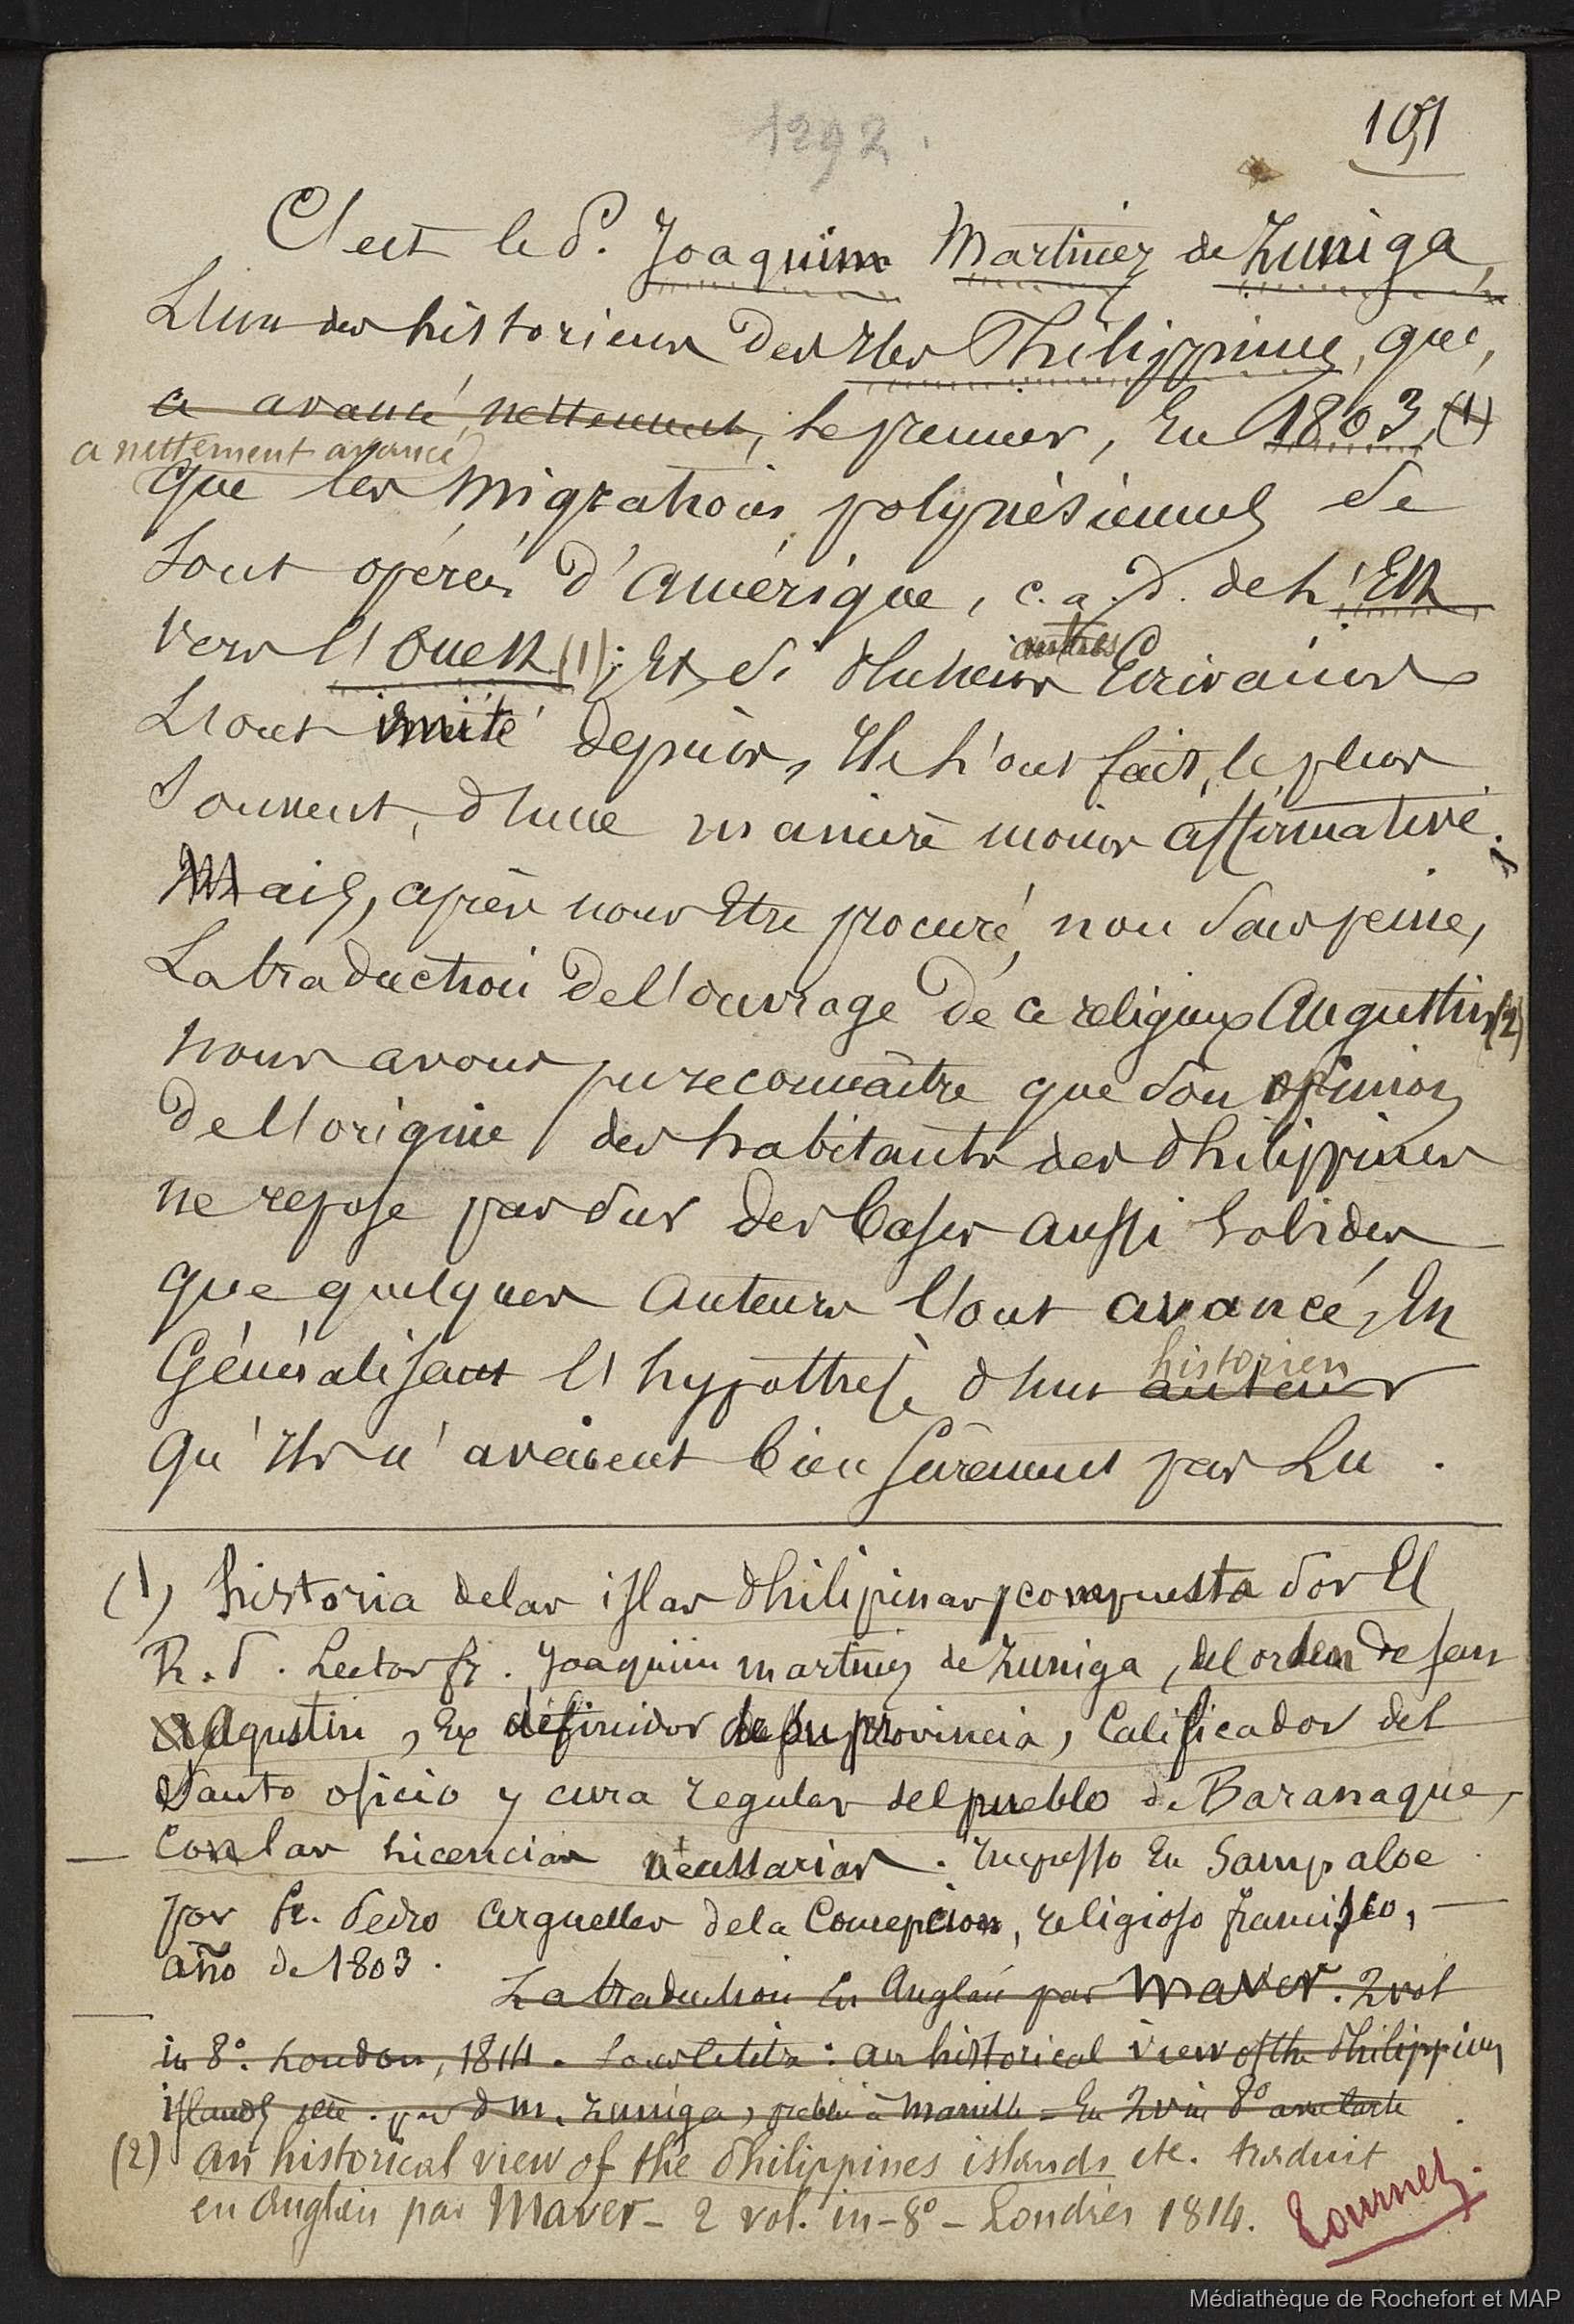 1292.
101
C'est le P. Joaquim Martinez de Zuniga,
L'un des historiens des Iles Philippines, qui,
a avancé nettement, le premier, En 1803, (1)
a nettement avancé
que les migrations polynésiennes se
sont opérées d'Amérique, c. a. d. de l'Est
vers l'Ouest (1); Et, si d'autres Ecrivains
autres
L'ont imité depuis, Ils l'ont fait, le plus
souvent, d'une manière moins affirmative.
Mais, après nous être procuré, non sans peine,
La traduction de l'ouvrage de ce religieux Augustin (2)
nous avons pu reconnaître que son opinion
de l'origine des habitants des Philippines
ne repose pas sur des bases aussi solides
que quelques auteurs l'ont avancé, En
Généralisant l'hypothèse d'un auteur
historien
qu'ils n'avaient bien sûrement pas Lu.
(1) historia de las islas Philipinas compuesta Por El
R. P. Lector fr. Joaquim martinez de Zuniga, del orden de san
Agustin, Ex définidor de su provincia, Calificador del
Santo oficio y cura regular del pueblo de Paranaque,
Con las Licencias nécessarias. Impresso En Sampaloc
por fr. Pedro Arguelles de la Concepcion, religioso francisco,
año de 1803.
La traduction En Anglais par Maver. 2 vol
in 8°. London, 1814. Sous le titre: An historical view of the Philippines
islands, etc. par d M. Zuniga, publié à Manille = En 2 v in 8° avec carte
(2) An historical view of the Philippines islands etc. traduit
en Anglais par Maver - 2 vol. in-8° - Londres 1814.
Tournez.
Médiathèque de Rochefort et MAP